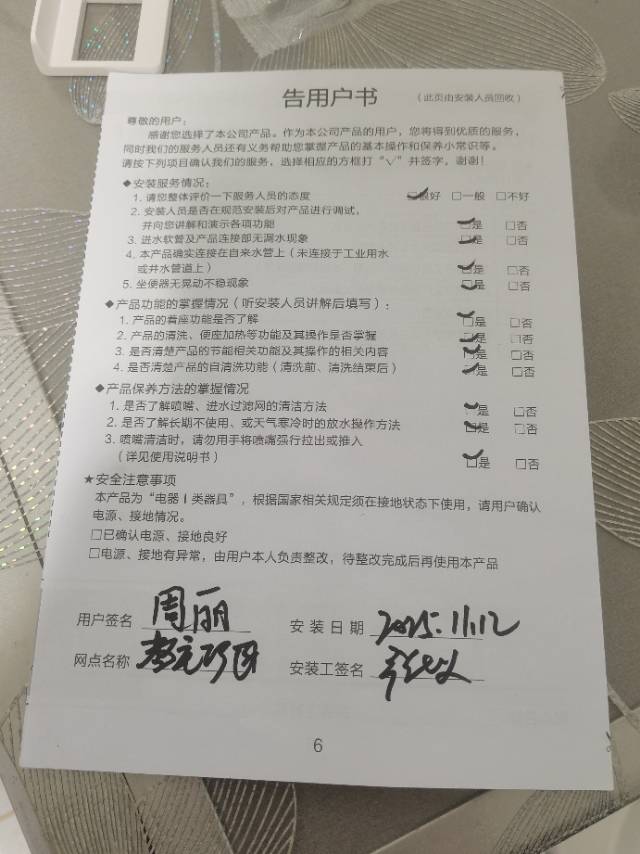 告用户书 （此页由安装人员回收）
尊敬的用户：
感谢您选择了本公司产品。作为本公司产品的用户，您将得到优质的服务，
同时我们的服务人员还有义务帮助您掌握产品的基本操作和保养小常识等。
请按下列项目确认我们的服务，选择相应的方框打“√”并签字，谢谢！
◆安装服务情况：
1. 请您整体评价一下服务人员的态度 ☑很好 □一般 □不好
2. 安装人员是否在规范安装后对产品进行调试，
并向您讲解和演示各项功能 ☑是 □否
3. 进水软管及产品连接部无漏水现象 ☑是 □否
4. 本产品确实连接在自来水管上（未连接于工业用水
或井水管道上） ☑是 □否
5. 坐便器无晃动不稳现象 ☑是 □否
◆产品功能的掌握情况（听安装人员讲解后填写）：
1. 产品的着座功能是否了解 ☑是 □否
2. 产品的清洗、便座加热等功能及其操作是否掌握 ☑是 □否
3. 是否清楚产品的节能相关功能及其操作的相关内容 ☑是 □否
4. 是否清楚产品的自清洗功能（清洗前、清洗结束后） ☑是 □否
◆产品保养方法的掌握情况
1. 是否了解喷嘴、进水过滤网的清洁方法 ☑是 □否
2. 是否了解长期不使用、或天气寒冷时的放水操作方法 ☑是 □否
3. 喷嘴清洁时，请勿用手将喷嘴强行拉出或推入
（详见使用说明书） ☑是 □否
★安全注意事项
本产品为“电器 I 类器具”，根据国家相关规定须在接地状态下使用，请用户确认
电源、接地情况。
□已确认电源、接地良好
□电源、接地有异常，由用户本人负责整改，待整改完成后再使用本产品
用户签名 周丽 安装日期 2025.11.12
网点名称 安装工签名
6